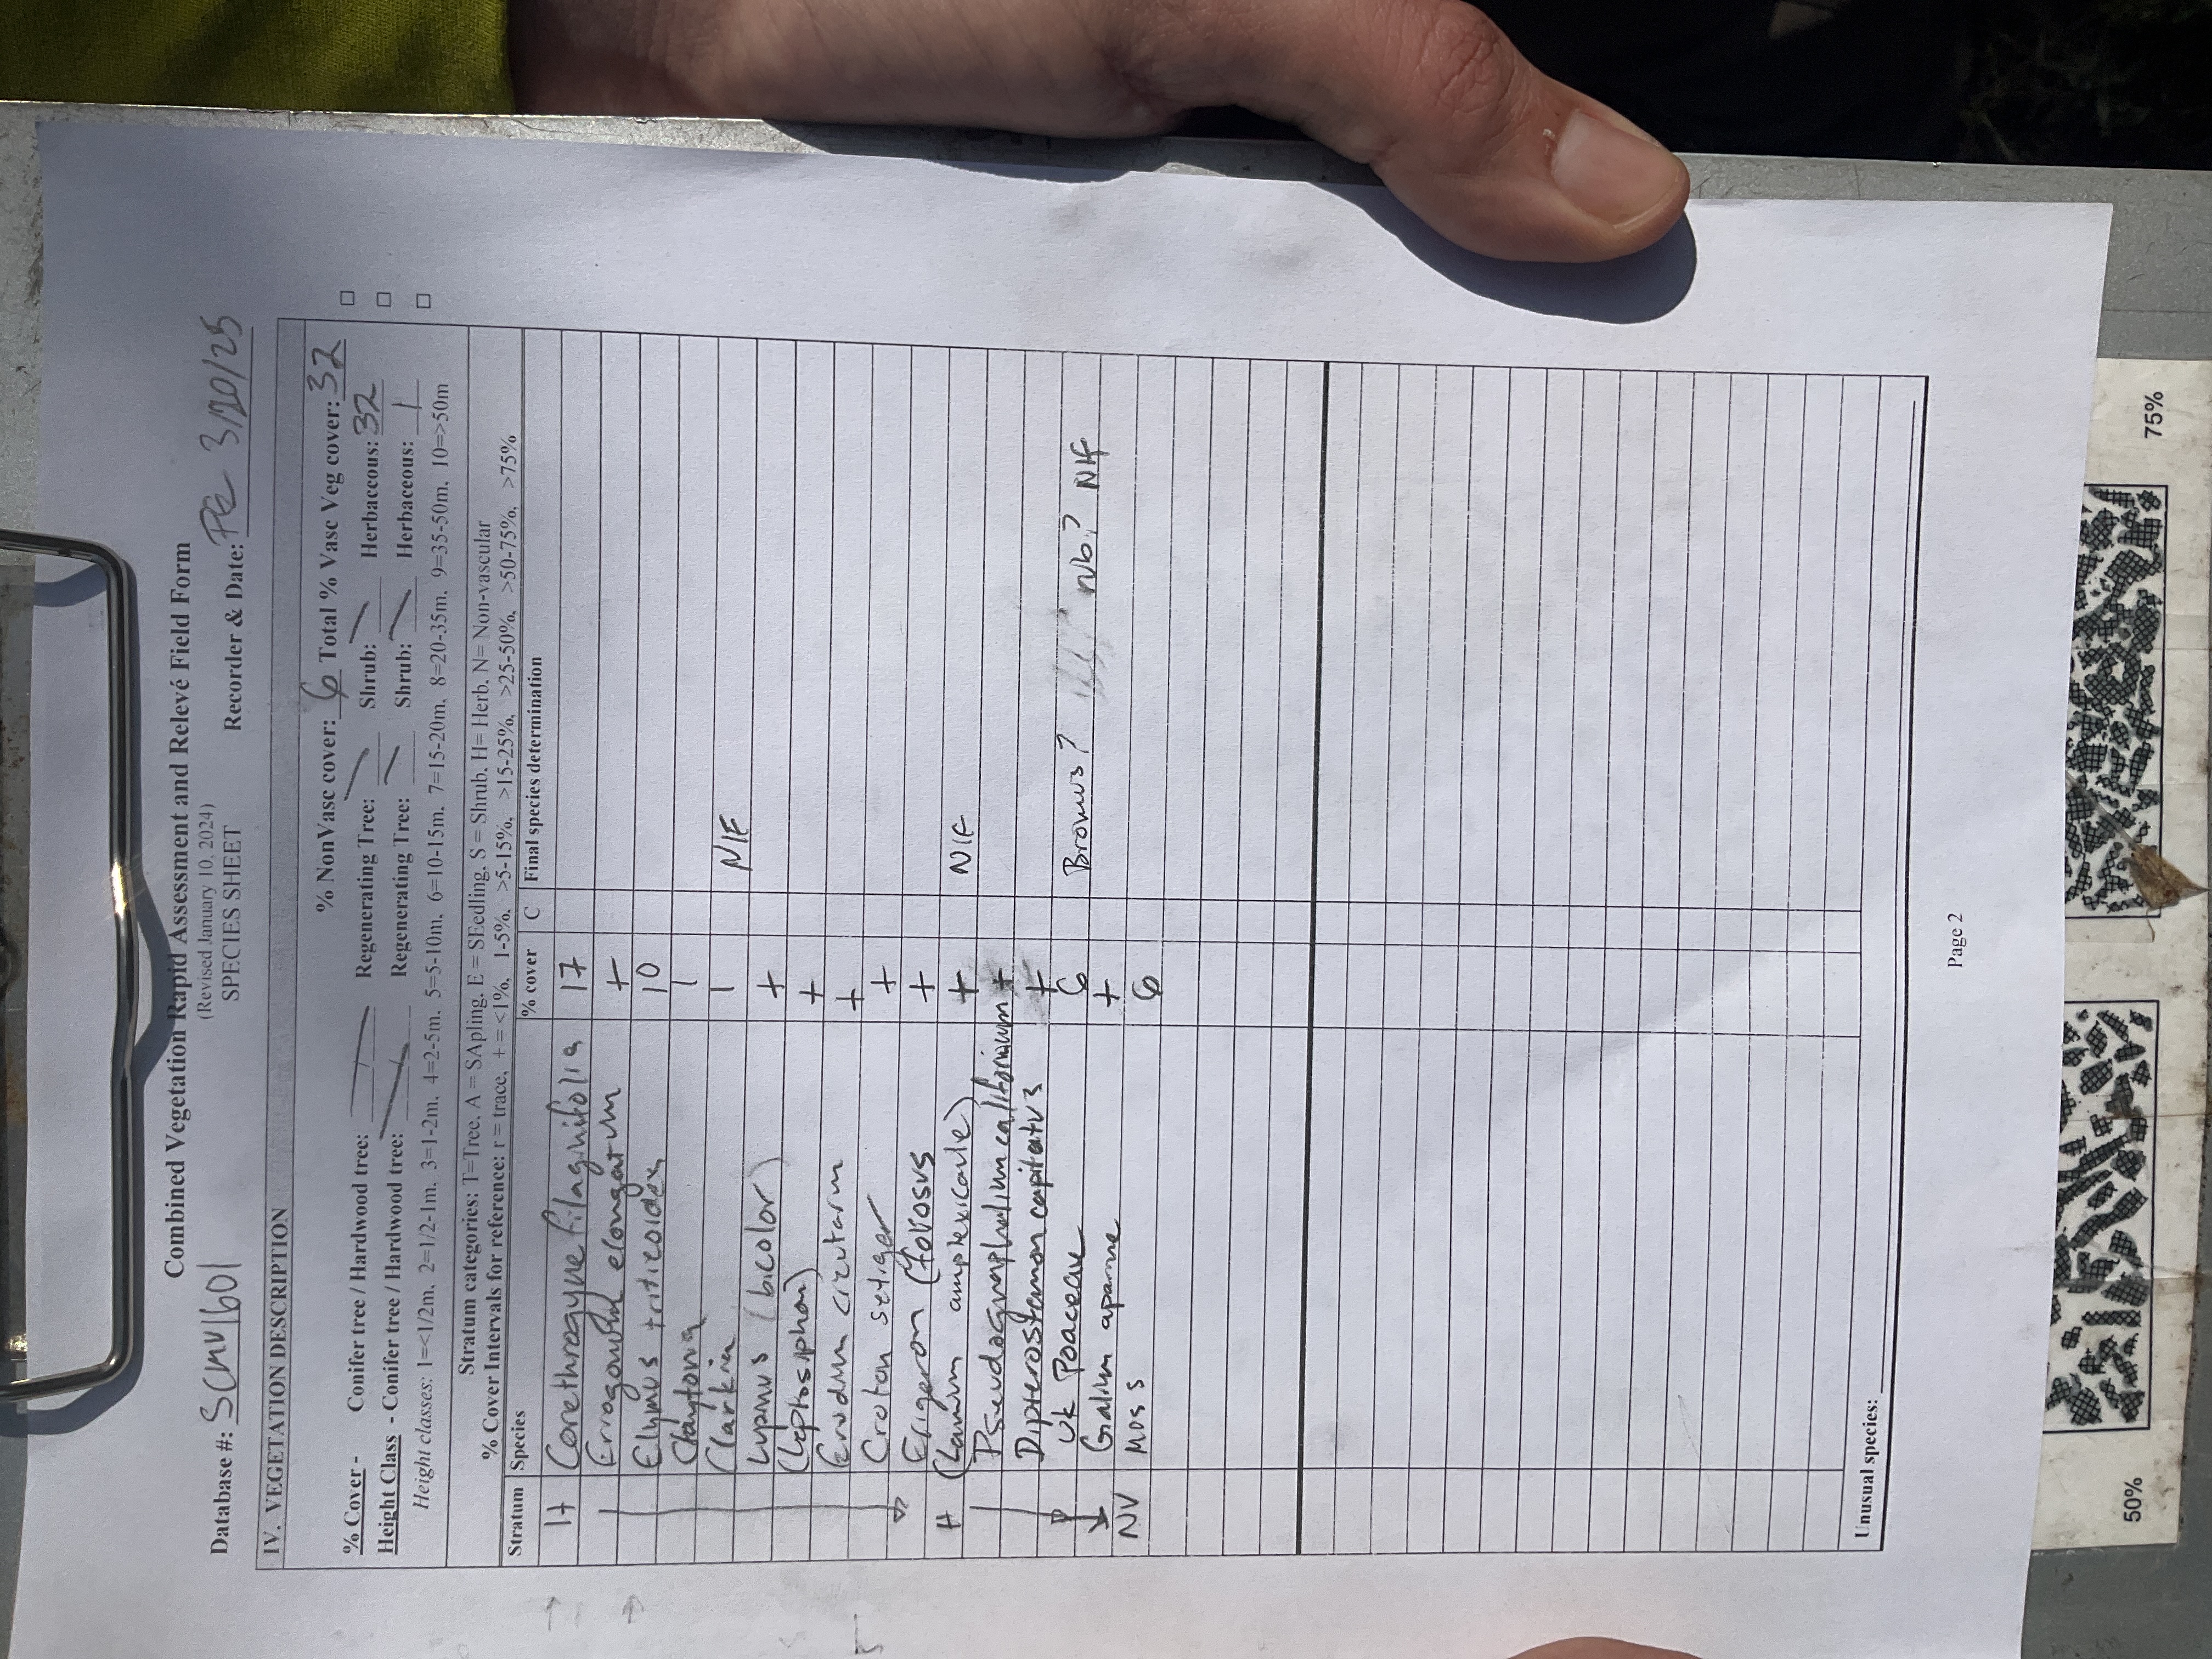 Combined Vegetation Rapid Assessment and Relevé Field Form
(Revised January 10, 2024)
SPECIES SHEET
Database #: SCMV1601 Recorder & Date: PG 3/20/25
IV. VEGETATION DESCRIPTION
% NonVasc cover: 6 Total % Vasc Veg cover: 32
% Cover - Conifer tree / Hardwood tree: / Regenerating Tree: Shrub: Herbaceous: 32
Height Class - Conifer tree / Hardwood tree: / Regenerating Tree: Shrub: Herbaceous: 1
Height classes: 1=<1/2m. 2=1/2-1m. 3=1-2m. 4=2-5m. 5=5-10m. 6=10-15m. 7=15-20m. 8=20-35m. 9=35-50m. 10=>50m
Stratum categories: T=Tree. A = SApling. E = SEedling. S = Shrub. H= Herb. N= Non-vascular
% Cover Intervals for reference: r = trace. + = <1%. 1-5%. >5-15%. >15-25%. >25-50%. >50-75%. >75%
Stratum Species % cover C Final species determination
H Corethrogyne filaginifolia 17
Eriogonum elongatum +
Elymus triticoides 10
Claytonia 1
Clarkia 1 NIF
Lupinus (bicolor) +
(Leptosiphon) +
Erodium cicutarium +
Croton setiger +
Erigeron (foliosus +
H (Lamium amplexicaule) + NIF
Pseudognaphalium californicum +
Dipterostemon capitatus +
UK Poaceae 6 Bromus? nb? NIF
Galium aparine +
NV Moss 6
Unusual species:
Page 2
50% 75%